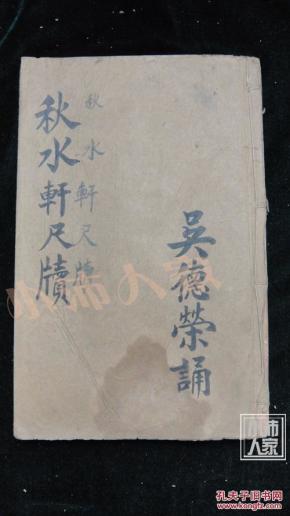 秋水軒尺牘
秋水軒尺牘
吳德榮誦
小市人家
小市人家
孔夫子旧书网